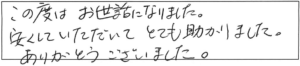 この度は お世話になりました。
安くしていただいて とても助かりました。
ありがとうございました。